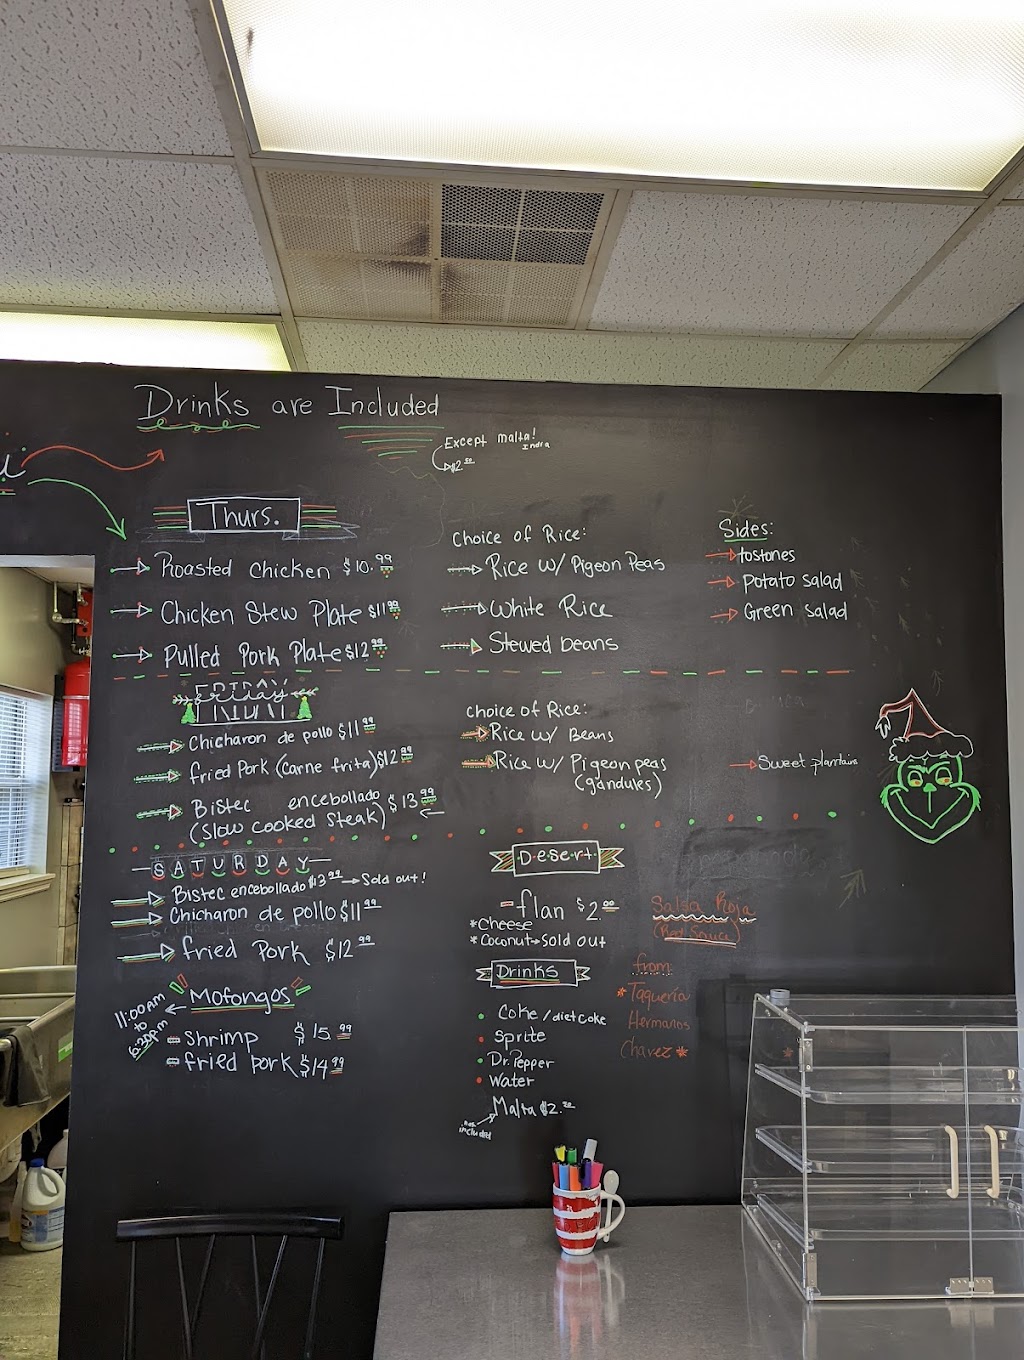 Drinks are Included
Except malta!
India
$2.50
Thurs.
Roasted chicken $10.99
Chicken Stew Plate $11.99
Pulled Pork Plate $12.99
Choice of Rice:
Rice w/ Pigeon Peas
White Rice
Stewed beans
Sides:
tostones
potato salad
Green salad
Friday
Chicharon de pollo $11.99
fried Pork (Carne frita) $12.99
Bistec encebollado $13.99
(Slow cooked steak)
Choice of Rice:
Rice w/ Beans
Rice w/ Pigeon peas
(gandules)
Sweet plantains
SATURDAY
Bistec encebollado $13.99 → Sold out!
Chicharon de pollo $11.99
fried Pork $12.99
Mofongos
11:00AM
to
6:30pm
Shrimp $15.99
fried pork $14.99
Desert
flan $2.00
*Cheese
*Coconut→Sold out
Drinks
Coke / diet coke
Sprite
Dr. Pepper
Water
Malta $2.50
not included
Salsa Roja
(Red Sauce)
from:
*Taqueria
Hermanos
Chavez*